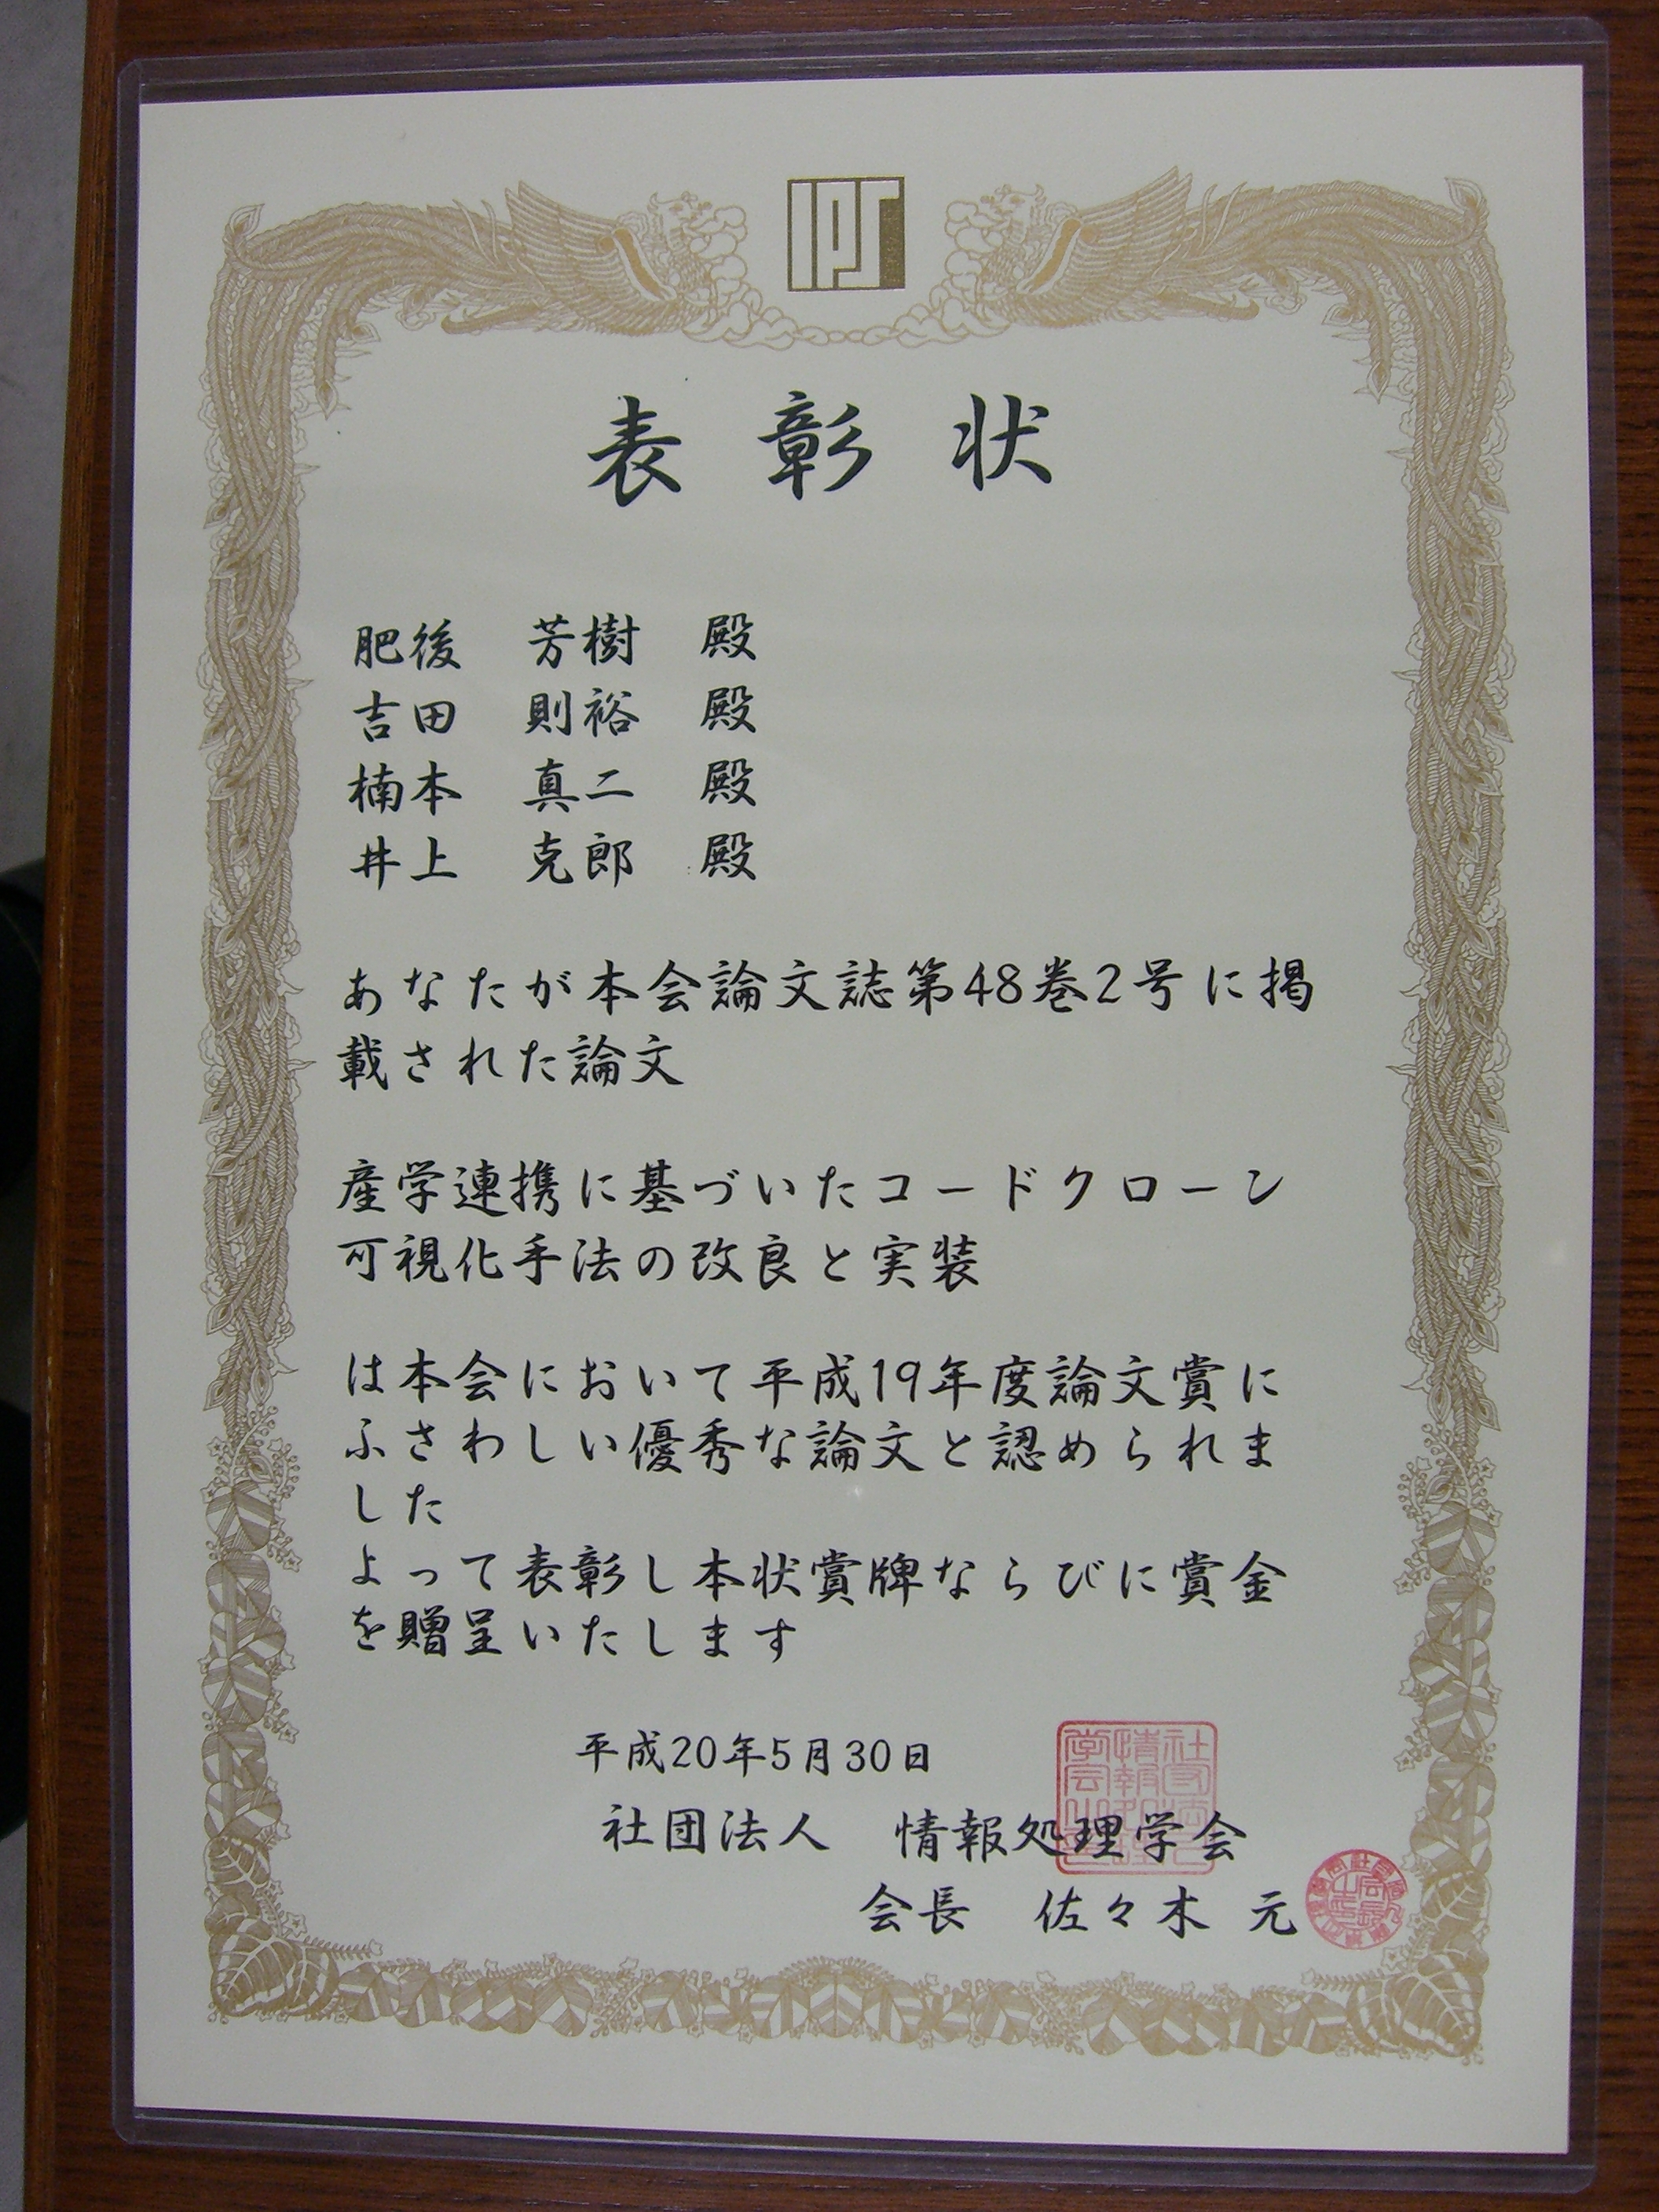 IPSJ
表彰状
肥後 芳樹 殿
吉田 則裕 殿
楠本 真二 殿
井上 克郎 殿
あなたが本会論文誌第48巻2号に掲
載された論文
産学連携に基づいたコードクローン
可視化手法の改良と実装
は本会において平成19年度論文賞に
ふさわしい優秀な論文と認められま
した
よって表彰し本状賞牌ならびに賞金
を贈呈いたします
平成20年5月30日
社団法人 情報処理学会
会長 佐々木 元